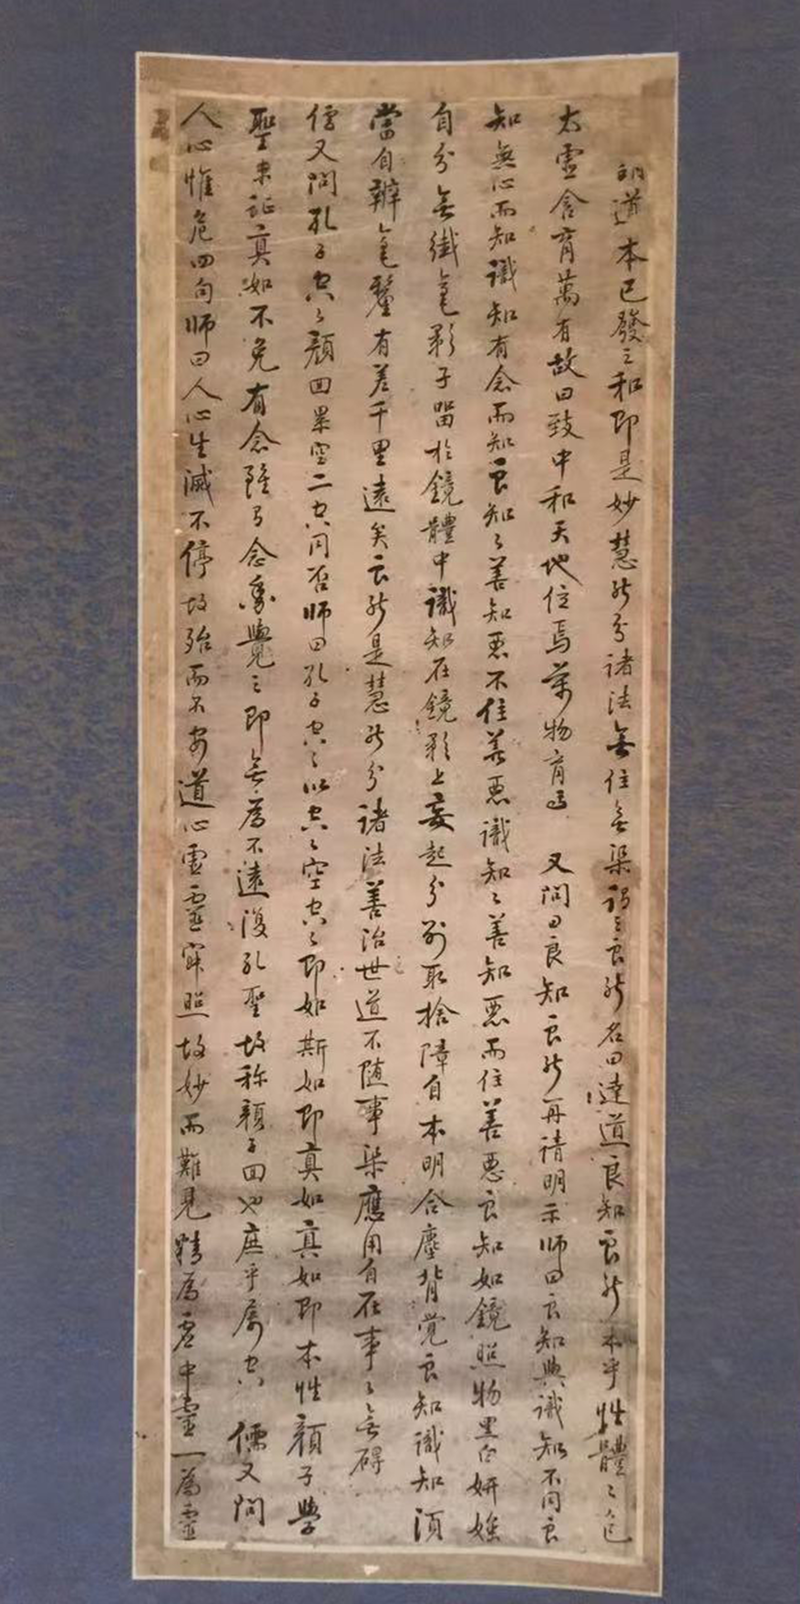 道本已發之和即是妙慧能分諸法無住無染謂之良能名曰達道良知良能本乎性體々包
太虛含育萬有故曰致中和天地位焉萬物育焉 又問曰良知良能再請明示師曰良知與識知不同良
知無心而知識知有念而知良知々善知惡不住善惡識知々善知惡而住善惡良知如鏡照物黑白妍媸
自分無纖毫影子留於鏡體中識知在鏡影上妄起分別取捨障自本明合塵背覺良知識知須
當自辨毫釐有差千里遠矣良能是慧能分諸法善治世道不隨事染應用自在事々無礙
儒又問孔子空々顏回累空二空同否師曰孔子空々以空々空空々即如斯如即真如真如即本性顏子學
聖未証真如不免有念雖有念為覺之即無為不遠復孔聖故称顏子回也庶乎屢空 儒又問
人心惟危四句師曰人心生滅不停故殆而不安道心虛靈寂照故妙而難見精為虛中靈一為靈